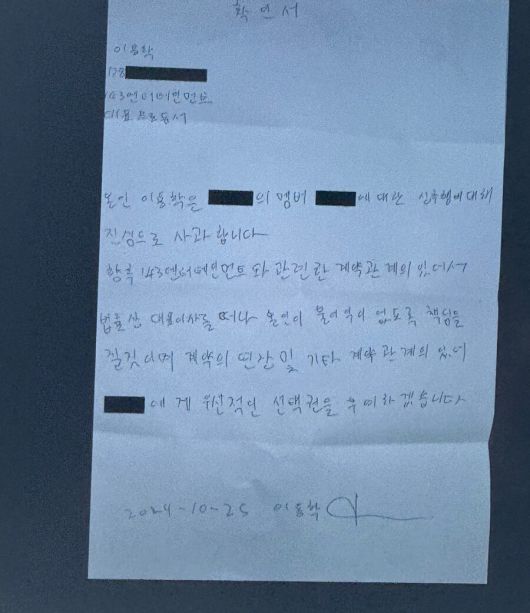 확인서
이용학
143엔터테인먼트
대표 프로듀서
본인 이용학은 의 멤버 에 대한 성추행에 대해
진심으로 사과 합니다
향후 143엔터테인먼트와 관련한 계약관계의 있어서
법률상 대표이사를 떠나 본인이 불이익이 없도록 책임을
질것이며 계약의 연장 및 기타 계약 관계의 있어
에게 우선적인 선택권을 부여하겠습니다
2024-10-25 이용학